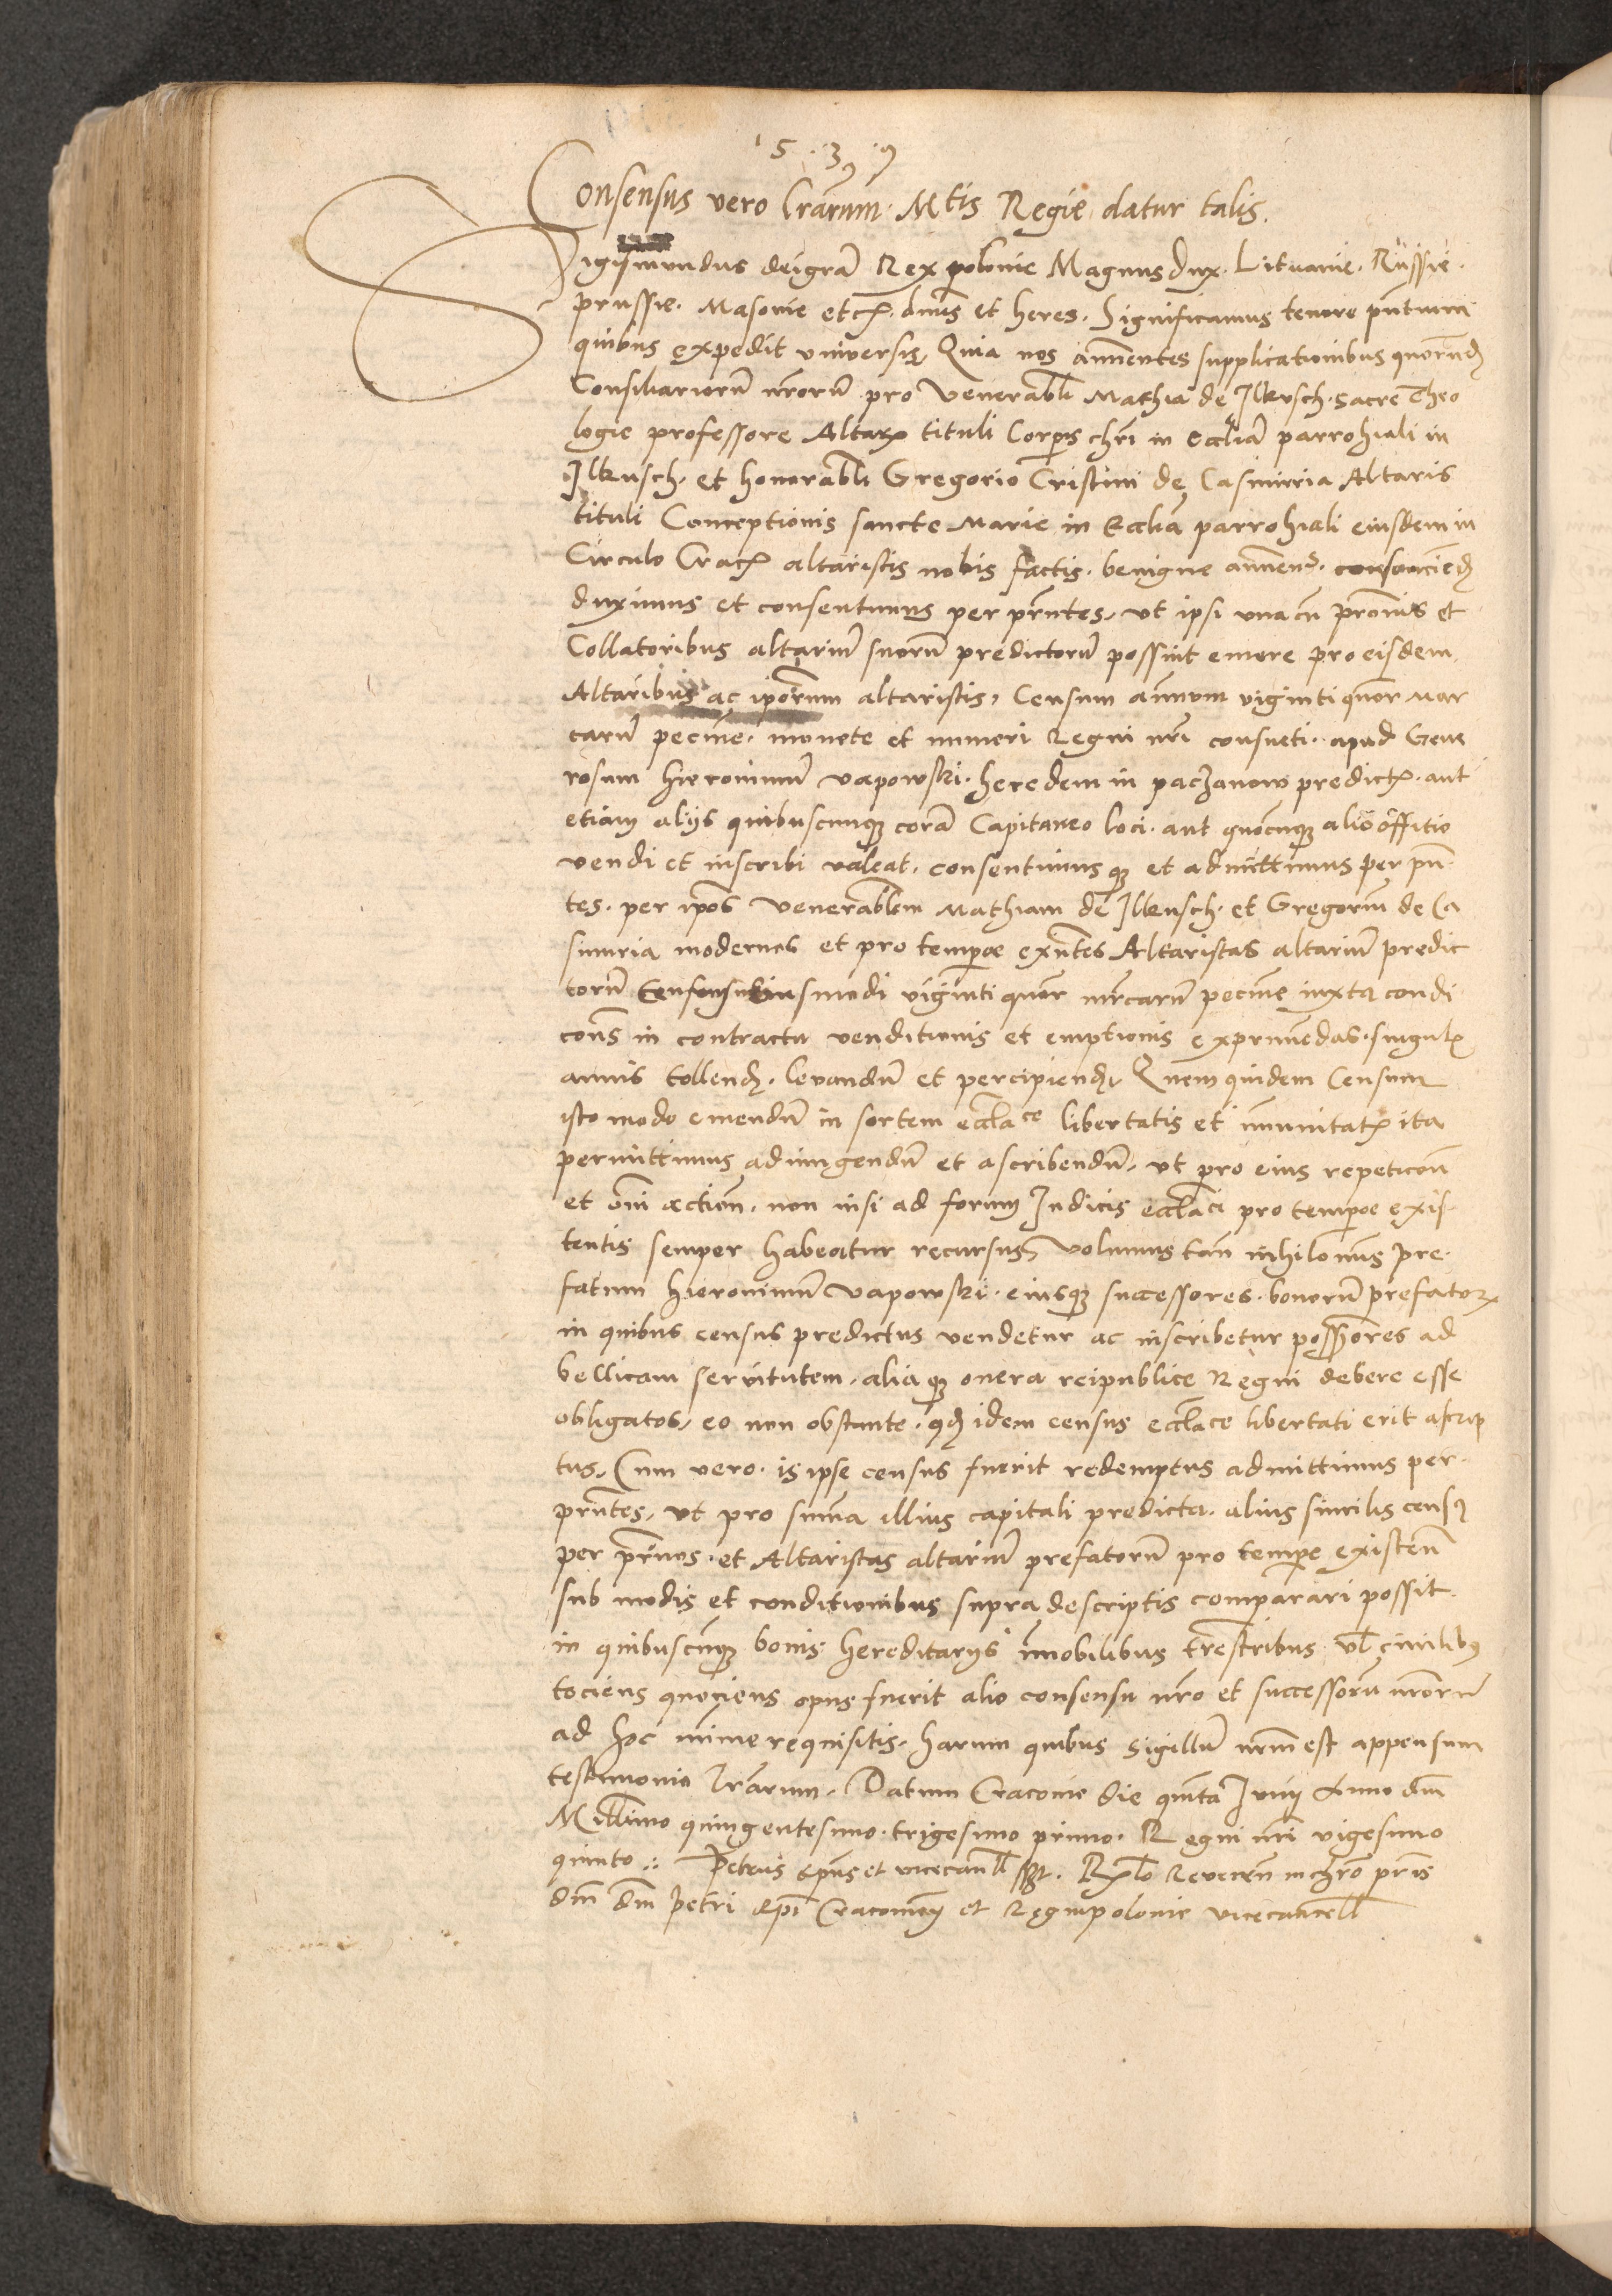 1 5 . 3 . 9
Consensus vero lrarum Mtis Regie datur talis.
Sigismundus deigra Rex polonie Magnus dux Lituanie. Russie.
prussie. Masovie etc. dnus et heres. Significamus tenore pntium
quibus expedit universis, Quia nos annuentes supplicationibus quorund
Consiliariorum nrorum pro Venerabli Mathia de Ilkusch sacre Theo
logie professore Altaris tituli Corpis chri in Ecclia parrohiali in
Ilkusch. et honorabli Gregorio Cristini de Casimiria Altaris
tituli Conceptionis sancte Marie in Ecclia parrohiali eiusdem in
Circulo Crac altaristis nobis factis. benigne annuen. consenciend
duximus et consentimus per prntes, ut ipsi una cu pronis et
Collatoribus altarium suoru predictoru possint emere pro eisdem
Altaribus ac iporum altaristis, Censum annuum viginti quor mar
caru pecunie. monete et numeri Regni nri consueti. apud Gene
rosum Hieronimu Vapowski. heredem in paczanow predict. aut
etiam aliis quibuscunque cora Capitaneo loci. aut quocunque alio offitio
vendi et inscribi valeat. consentimusque et admittimus per pn
tes. per ipos Venerablem Mathiam de Ilkusch et Gregoriu de Ca
simiria modernos et pro tempore exntes Altaristas altarium predic
toru censum huiusmodi viginti quor mrcaru pecunie iuxta condi
cons in contractu venditionis et emptionis exprimedas. singul
annis tollend. levandu et percipiend. Quem quidem Censum
isto modo emendu in sortem ecclace libertatis et immunitat ita
permittimus adiungendu et ascribendu, ut pro eius repeticon
et omi action. non nisi ad forum Iudicis ecclaci pro tempore exis
tentis semper habeatur recursus, Volumus tan nihilominus pre
fatum Hieronimu Vapowski. eiusque successores. bonoru prefator
in quibus census predictus vendetur ac inscribetur possores ad
bellicam servitutem. aliaque onera reipublice Regni debere esse
obligatos, eo non obstante. qd idem census ecclace libertati erit ascrip
tus, Cum vero. is ipse census fuerit redemptus admittimus per
prntes, ut pro suma illius capitali predicta. alius similis census
per prnos. et Altaristas altariu prefatoru pro tempore existen
sub modis et conditionibus supra descriptis comparari possit
in quibuscunque bonis hereditariis imobilibus trestribus vl civilibus
tociens quociens opus fuerit alio consensu nro et successoru nroru
ad hoc minime requisitis. harum quibus Sigillu nrm est appensum
testimonio lrarum. Datum Cracovie die quinta Iunii Anno dni
Millimo quingentesimo. trigesimo primo. Regni nri vigesimo
quinto. Petrus Epus et vicecanll sst. Rlo Reveren in chro pris
dni dni Petri Epi Cracovien et Regni polonie vicecancell